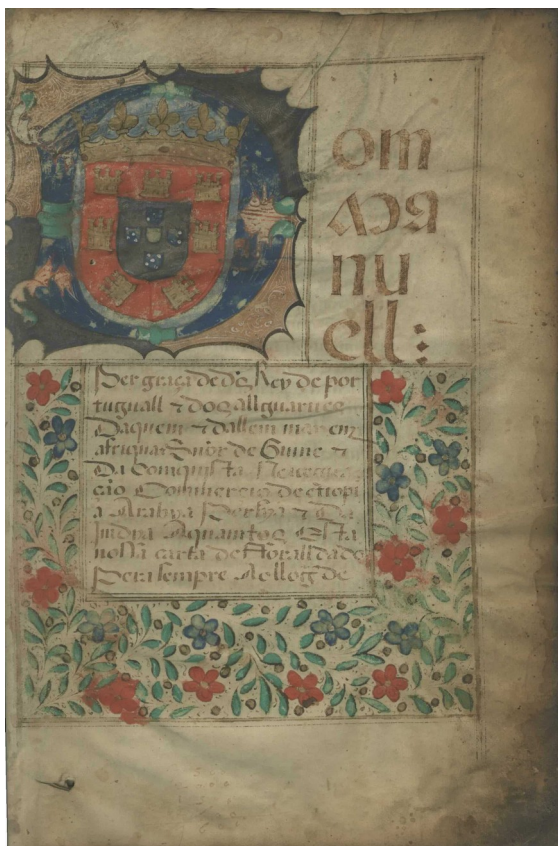 om
ma
nu
ell:
Per graça de ds Rey de por
tuguall τ dos allguarues
Daquem τ dallem mar em
afriqua Snor de Guine τ
Da comquista Nauegua
ção Commercio de ethiopi
a Arabya Persya τ Da
Jndia Aquamtos Esta
nossa carta de fforall dada
Pera sempre Aa